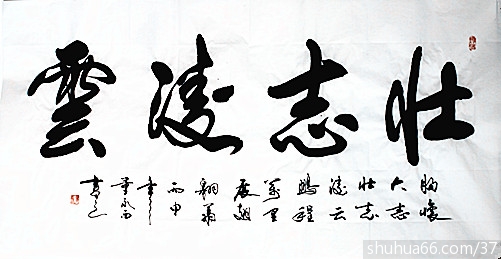 壮志凌雲
胸懷
大志
壮志
凌云
鹏程
萬里
展翅
翱翔
丙申
shuhua66.com/37